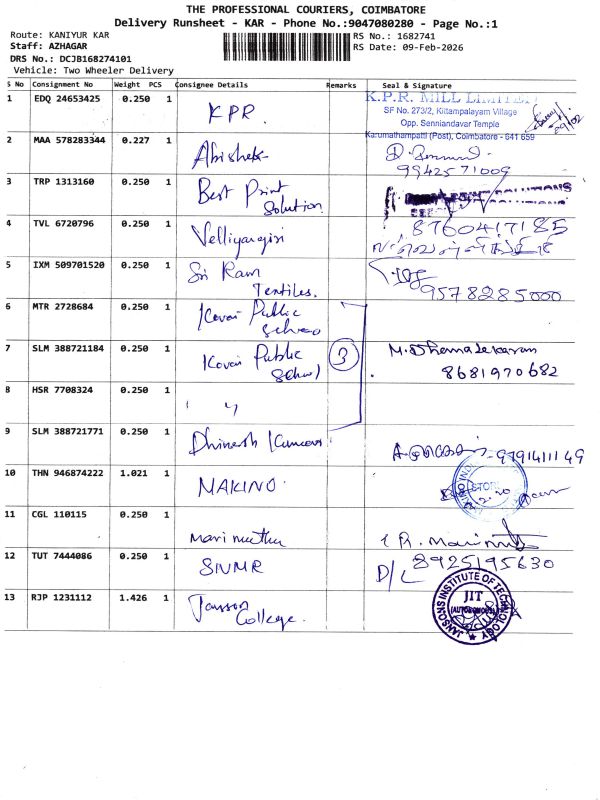 THE PROFESSIONAL COURIERS, COIMBATORE
Delivery Runsheet - KAR - Phone No.:9047080280 - Page No.:1
Route: KANIYUR KAR
Staff: AZHAGAR
DRS No.: DCJB168274101
Vehicle: Two Wheeler Delivery
RS No.: 1682741
RS Date: 09-Feb-2026
S No Consignment No Weight PCS Consignee Details Remarks Seal & Signature
1 EDQ 24653425 0.250 1 KPR
K.P.R. MILL LIMITED
SF No. 273/2, Kittampalayam Village
Opp. Senniandavar Temple
Karumathampatti (Post), Coimbatore - 641 659
2 MAA 578283344 0.227 1 Abishek
9942571009
3 TRP 1313160 0.250 1 Best Print
Solution
4 TVL 6720796 0.250 1 Velliyangiri 8760417185
5 IXM 509701520 0.250 1 Sri Ram
Textiles. 9578285000
6 MTR 2728684 0.250 1 Kovai Public
School
7 SLM 388721184 0.250 1 Kovai Public
School 3 M. Dhanasekaran
8681970682
8 HSR 7708324 0.250 1 " "
9 SLM 388721771 0.250 1 Dhinesh Kumar 9791411149
10 THN 946874222 1.021 1 MAKINO
STORE
11 CGL 110115 0.250 1 Mari muthu R. Marimuthu
12 TUT 7444086 0.250 1 SNMR D/L 8925195630
13 RJP 1231112 1.426 1 Janson
College
JANSONS INSTITUTE OF TECHNOLOGY
JIT
(AUTONOMOUS)